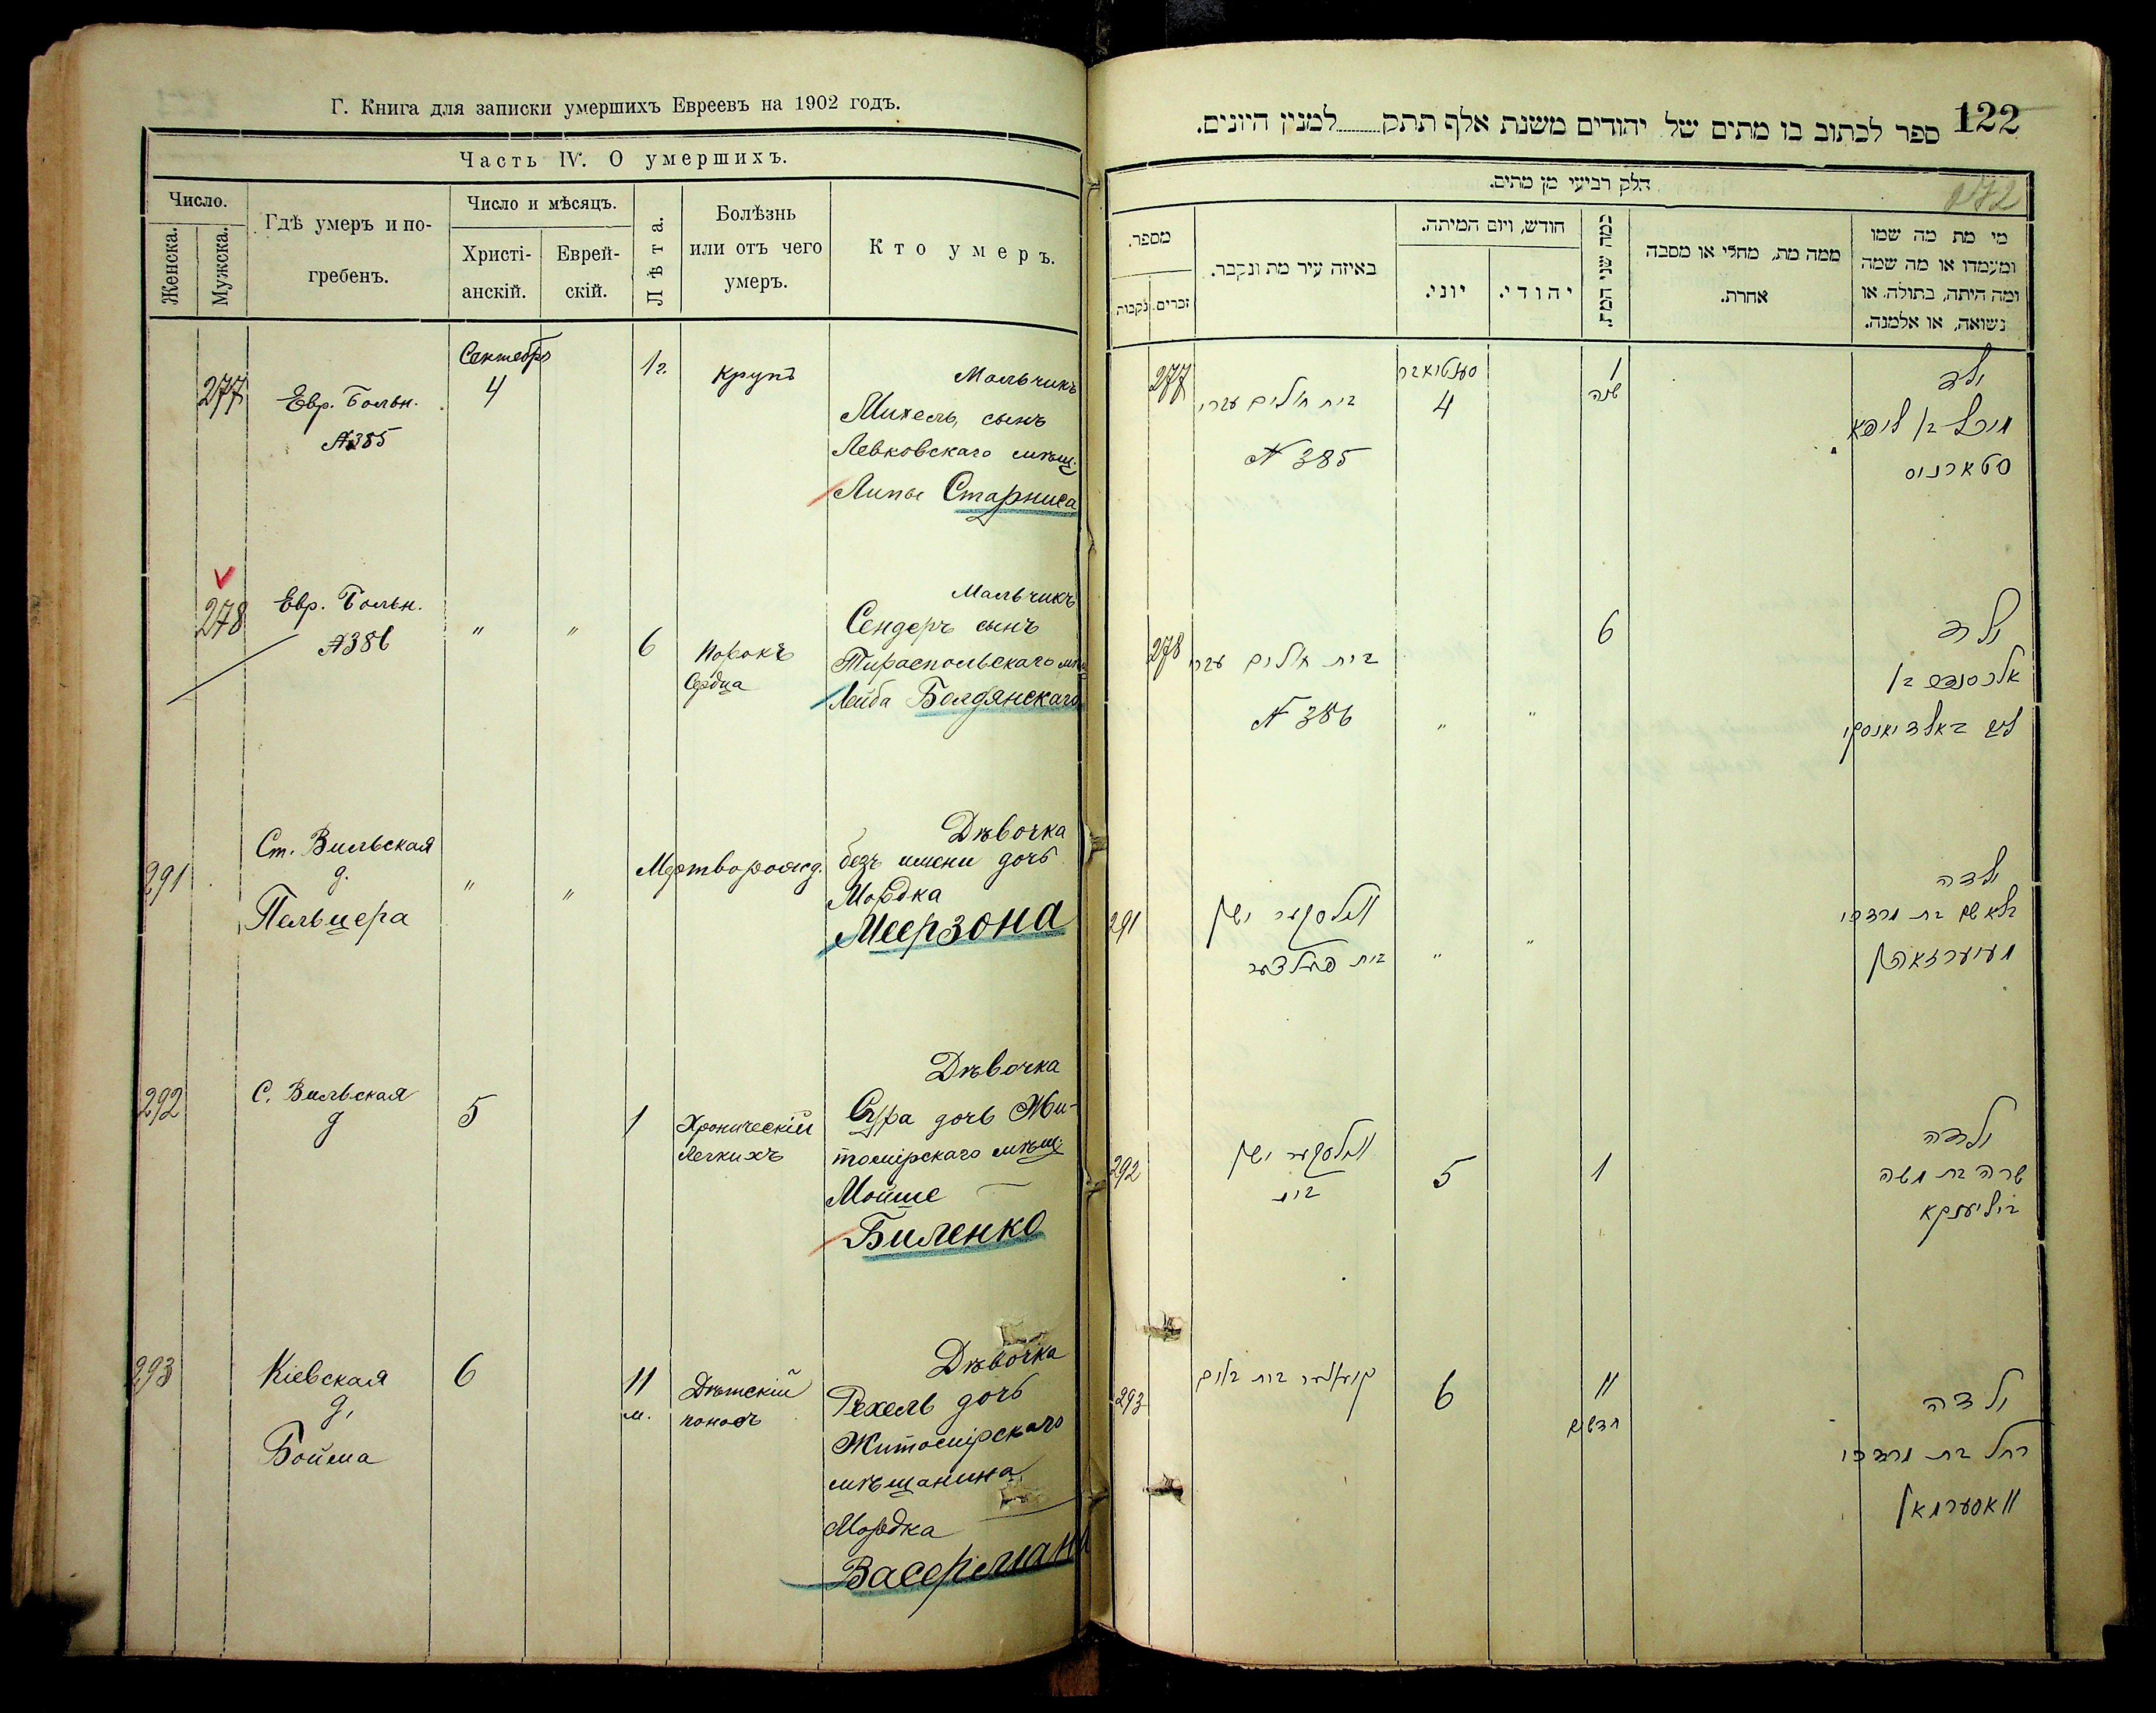 Г. Книга для записки умершихъ Евреевъ на 1902 годъ.
Часть IV. О умершихъ.
Число.
Женска.
Мужска.
Гдѣ умеръ и по-
гребенъ.
Число и мѣсяцъ.
Христі-
анскій.
Еврей-
скій.
Лѣта.
Болѣзнь
или отъ чего
умеръ.
Кто умеръ.
277
Евр. Больн.
№385
Сентябрь
4
1 г.
Крупъ
Мальчикъ
Михель, сынъ
Левковскаго мѣщ.
Липы Старниса
278
Евр. Больн.
№386
"
"
6
Порокъ
Сердца
Мальчикъ
Сендеръ сынъ
Тираспольскаго мѣщ
Лейба Болдянскаго
291
Ст. Вильская
д.
Пельцера
"
"
Мертворожд.
Дѣвочка
безъ имени дочь
Мордка
Меерзона
292
С. Вильская
д
5
1
Хроническій
Легкихъ
Дѣвочка
Сура дочь Жи-
томірскаго мѣщ
Мойше
Биленко
293
Кіевская
д,
Бойма
6
11
м.
Дѣтскій
поносъ
Дѣвочка
Рехель дочь
Житомірскаго
мѣщанина
Мордка
Васерман
122
ספר לכתוב בו מתים של יהודים משנת אלף תתק למנין היונים.
172
חלק רביעי מן מתים.
מספר.
זכרים.
נקבות
באיזה עיר מת ונקבר.
חודש, ויום המיתה.
יוני.
יהודי.
כמה שני המת.
ממה מת, מחלי או מסבה
אחרת.
מי מת מה שמו
ומעמדו או מה שמה
ומה היתה, בתולה, או
נשואה, או אלמנה.
277
בית חולים עברי
№ 385
סעפטיאבר
4
1
שנה
ילד
מיכל בן ליפא
סטארניס
278
בית חולים עברי
№ 386
"
"
6
ילד
אלכסנדר בן
ליב באלדיאנסקי
291
ווילסקער ישן
בית פעלצער
"
"
ילדה
בלא שם בת מרדכי
מעיערזאהן
292
ווילסקער ישן
בית
5
1
ילדה
שרה בת משה
ביליענקא
293
קיעווער בית בוים
6
11
חדשים
ילדה
רחל בת מרדכי
וואסערמאן